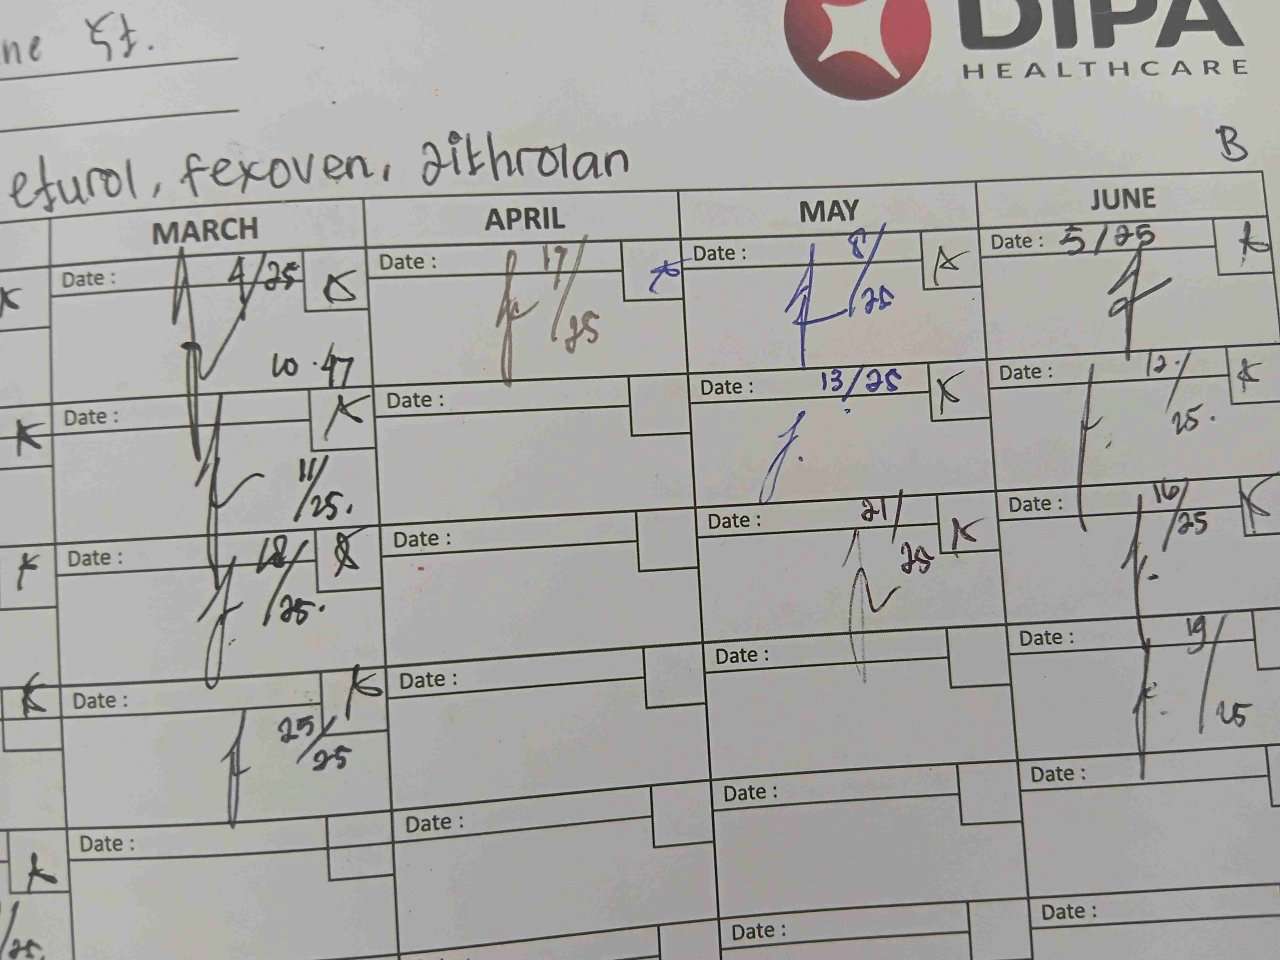 DIPA
HEALTHCARE
efurol, fexoven, zithrolan
B
MARCH APRIL MAY JUNE
Date : 4/25 K Date : 17/25 K Date : 8/25 K Date : 5/25 K
10.47
Date : 11/25. K Date : Date : 13/25 K Date : 12/25. K
Date : 18/25. K Date : Date : 21/25 K Date : 16/25 K
Date : 25/25 K Date : Date : Date : 19/25
Date : Date : Date : Date :
Date : Date :